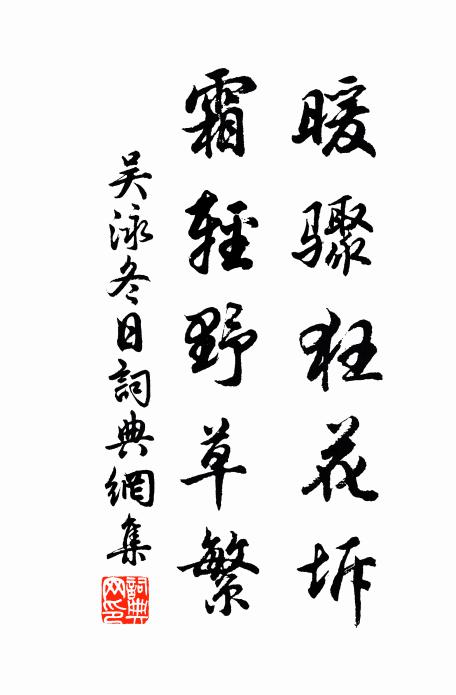 暖驟狂花坼
霜輕野草繁
吴泳冬日詞典網集
詞典網印